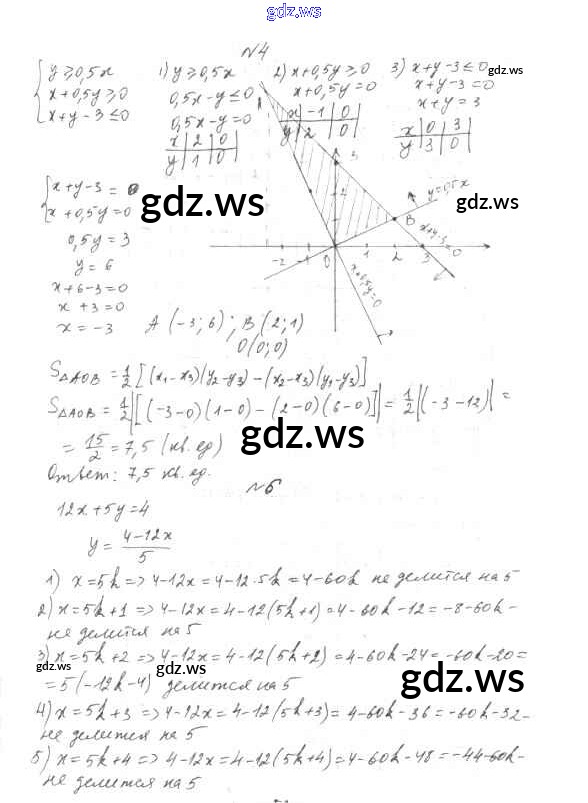 gdz.ws
№4
{ y ≥ 0,5x
x + 0,5y ≥ 0
x + y - 3 ≤ 0
1) y ≥ 0,5x
0,5x - y ≤ 0
0,5x - y = 0
x | 2 | 0
y | 1 | 0
2) x + 0,5y ≥ 0
x + 0,5y = 0
x | -1 | 0
y | 2 | 0
3) x + y - 3 ≤ 0
x + y - 3 = 0
x + y = 3
x | 0 | 3
y | 3 | 0
gdz.ws
{ x + y - 3 = 0
x + 0,5y = 0
0,5y = 3
y = 6
x + 6 - 3 = 0
x + 3 = 0
x = -3
gdz.ws
gdz.ws
A
3
2
y = 0,5x
B
x+y-3=0
x+0,5y=0
-2 -1 0 1 2 3
A (-3; 6); B (2; 1)
O(0; 0)
S△AOB = 1/2 [(x1 - x3)(y2 - y3) - (x2 - x3)(y1 - y3)]
S△AOB = 1/2 |[(-3-0)(1-0) - (2-0)(6-0)]| = 1/2 |(-3-12)| =
= 15/2 = 7,5 (кв. ед)
gdz.ws
Ответ: 7,5 кв. ед.
№6
12x + 5y = 4
y = 4-12x / 5
1) x = 5k => 4-12x = 4-12·5k = 4-60k не делится на 5
2) x = 5k + 1 => 4-12x = 4-12(5k+1) = 4-60k-12 = -8-60k -
не делится на 5
3) x = 5k + 2 => 4-12x = 4-12(5k+2) = 4-60k-24 = -60k-20 =
= 5(-12k-4) делится на 5
gdz.ws
gdz.ws
gdz.ws
4) x = 5k + 3 => 4-12x = 4-12(5k+3) = 4-60k-36 = -60k-32 -
не делится на 5
5) x = 5k + 4 => 4-12x = 4-12(5k+4) = 4-60k-48 = -44-60k -
не делится на 5
gdz.ws